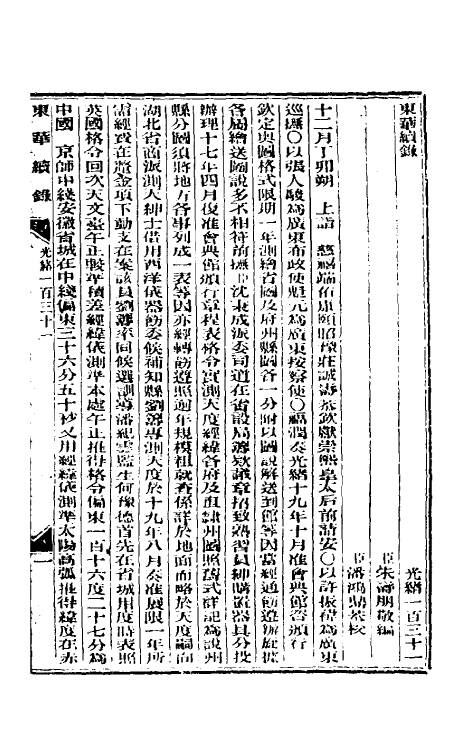 東華續錄
光緒一百三十一
臣朱壽朋敬編
臣潘鴻鼎恭校
十二月丁卯朔　上詣　慈禧端佑康頤昭豫莊誠壽恭欽獻崇熙皇太后前請安○以許振禕為廣東
巡撫○以張人駿為廣東布政使魁元為廣東按察使○福潤奏光緒十九年十月准會典館咨頒行
欽定輿圖格式限期一年測繪省圖及府州縣圖各一分附以圖說解送到館等因當經通飭遵辦旋據
各屬繪送圖說多不相符前撫臣沈秉成派委司道在省設局籌款議章招致熟習員紳購置器具分投
辦理十七年四月復准會典館頒行章程表格令實測天度經緯各府及直隸州圖照舊式詳記為說州
縣分圖須將地方各事列成一表等因亦經轉飭遵照逾年規模粗就查係詳於地面而略於天度嗣由
湖北省商派測天紳士借用西洋儀器飭委候補知縣劉籌專測天度於十九年八月奏准展限一年所
需經費在釐金項下動支在案該員劉籌率同候選訓導潘紀雲監生何豫德首先在省城用度時表照
英國格令回次天文臺午正驗準積差經緯儀測準本處午正推得格令偏東一百十六度二十七分為
中國　京師中綫安徽省城在中綫偏東三十六分五十秒又用經緯儀測準太陽高弧推得緯度在赤
東華續錄
光緒一百三十一
一